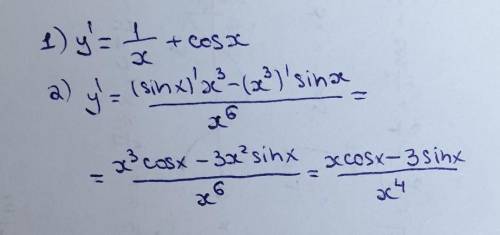 1) y' = 1/x + cosx
2) y' = ((sinx)'x³ - (x³)'sinx)/x⁶ =
= (x³cosx - 3x²sinx)/x⁶ = (xcosx - 3sinx)/x⁴